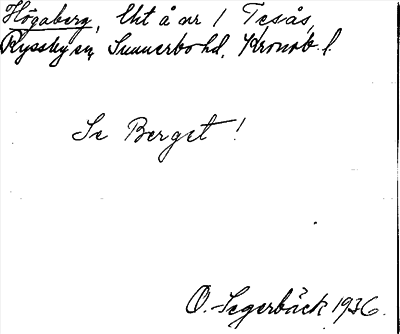 Högaberg, Uht å nr 1 Tesås,
Ryssby sn, Sunnerbo hd. Kronob. l.
Se Berget!
O. Segerbäck 1936.